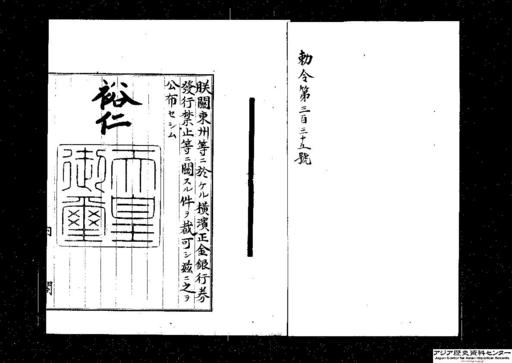 勅令第三百三十五號
朕關東州等ニ於ケル橫濱正金銀行券
發行禁止等ニ關スル件ヲ裁可シ茲ニ之ヲ
公布セシム
裕仁
天皇
御璽
内
閣
アジア歴史資料センター
Japan Center for Asian Historical Records